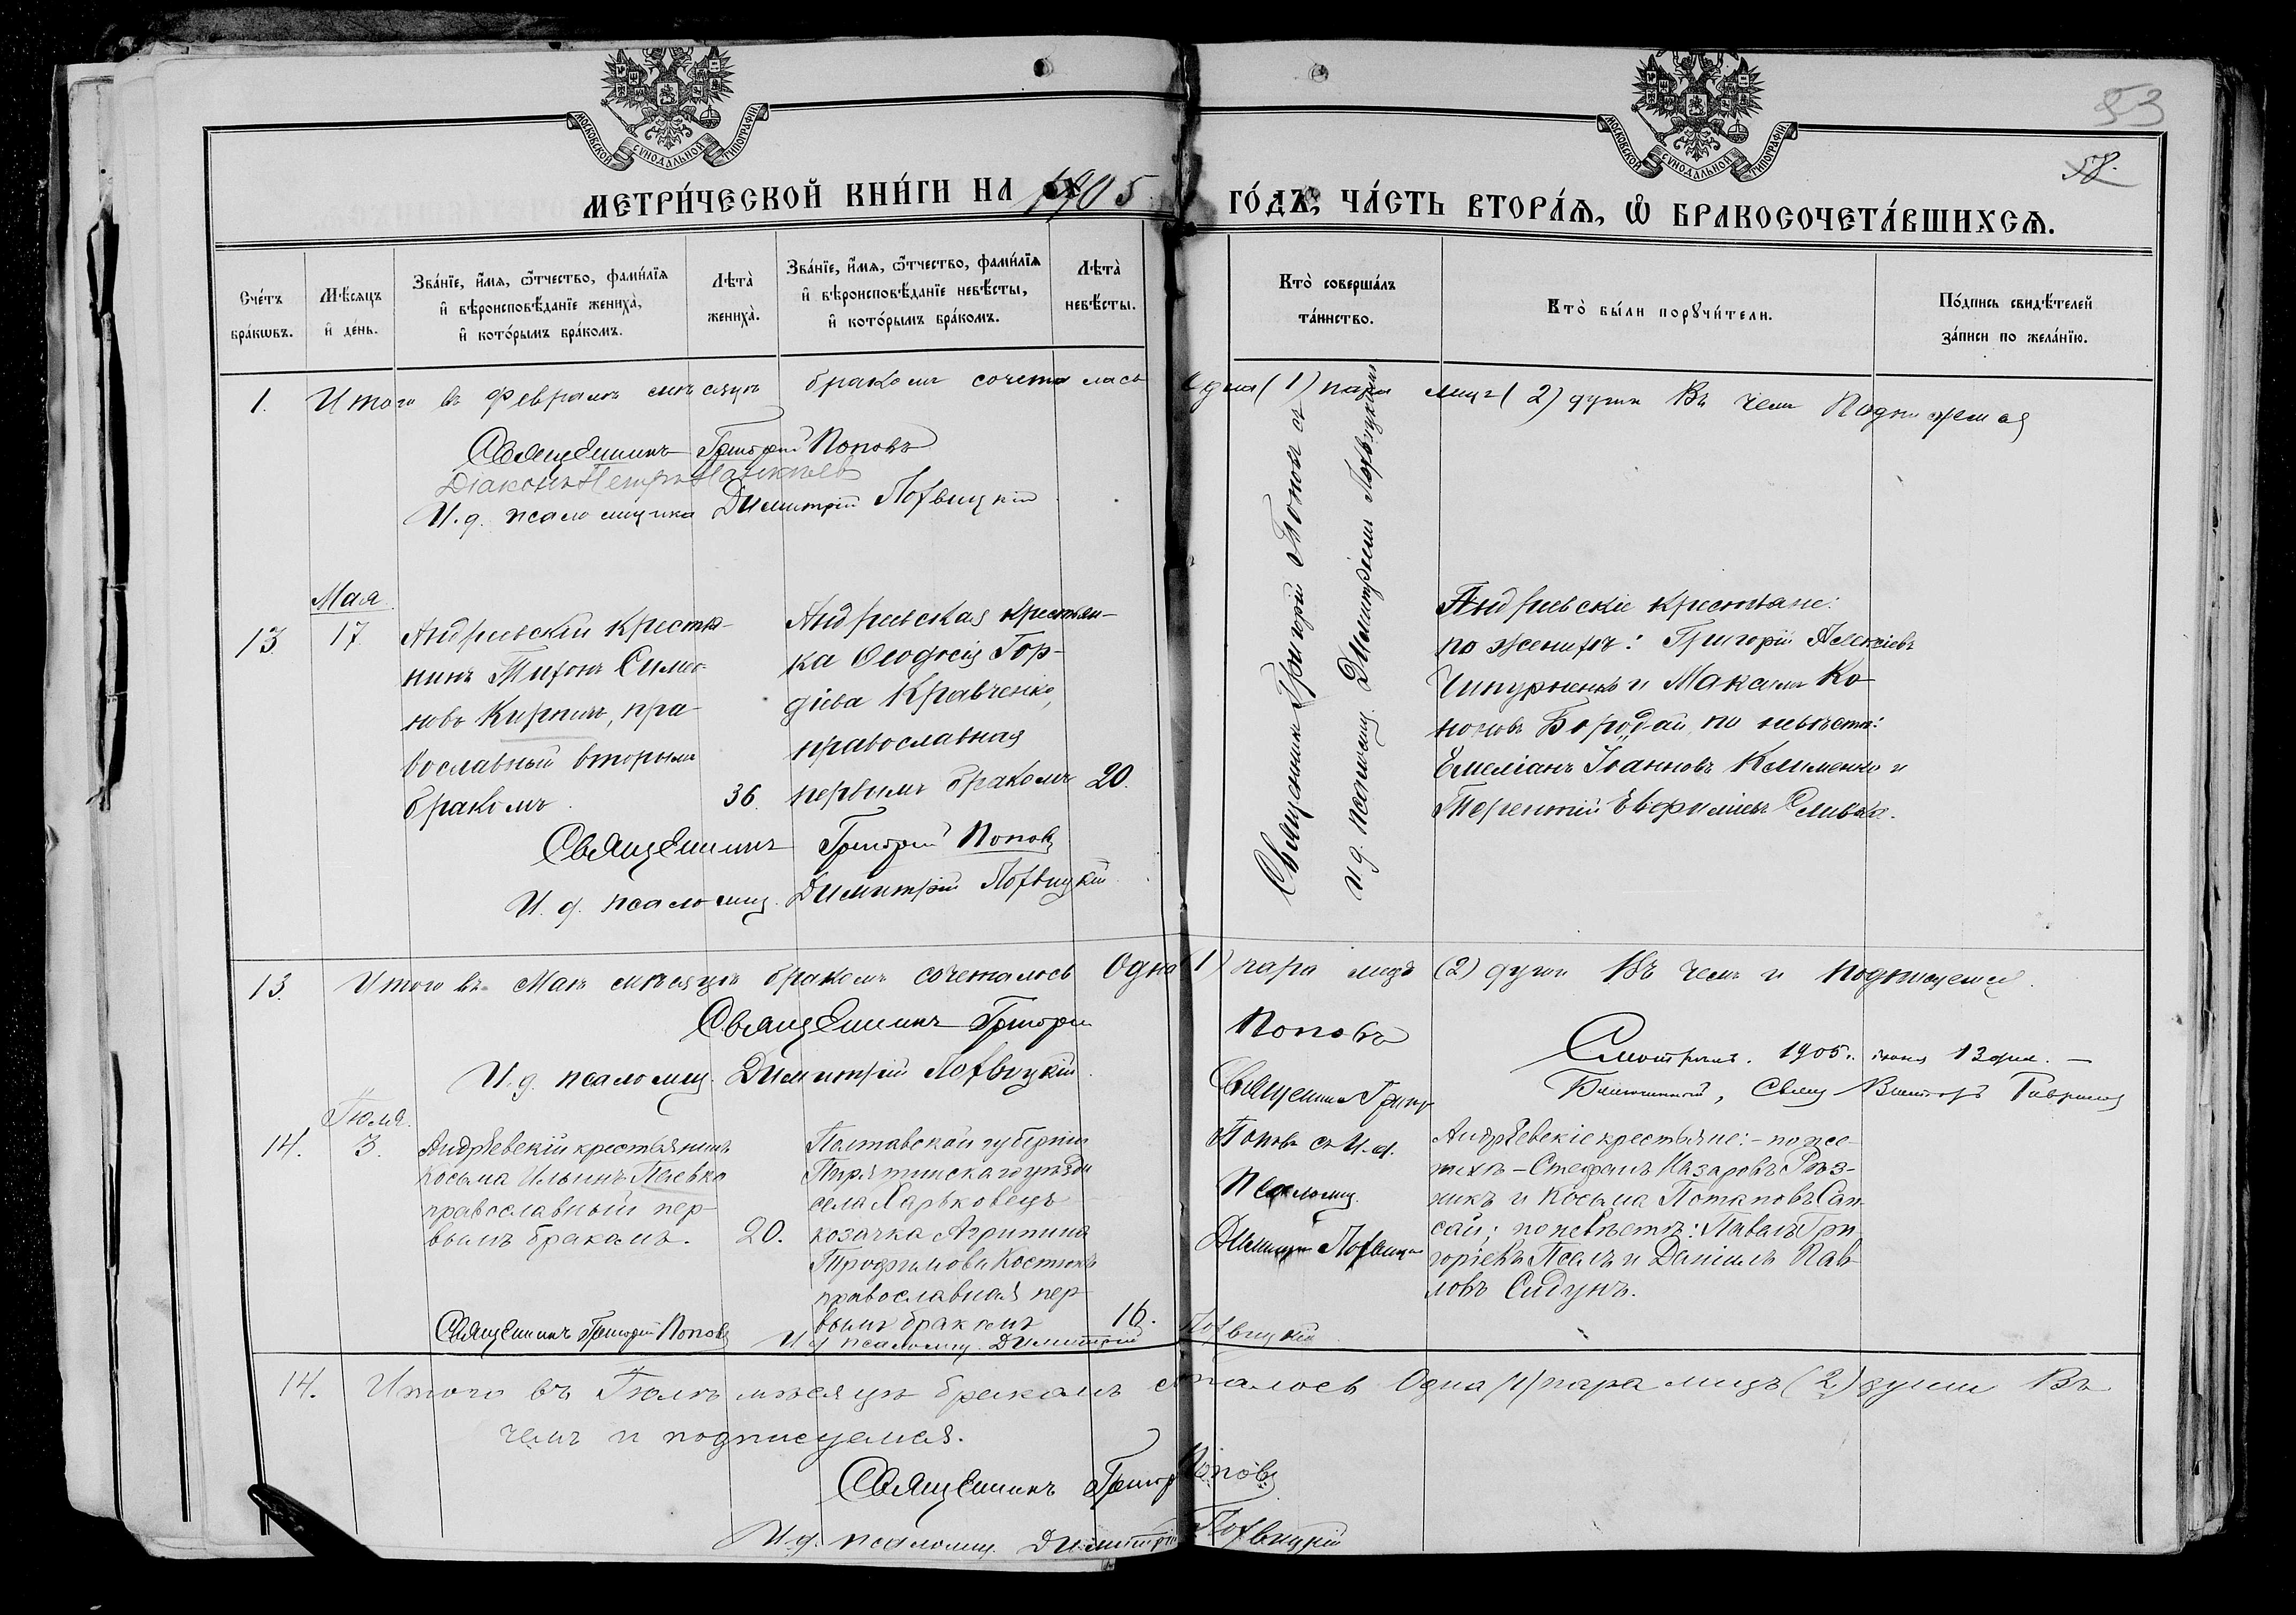 МОСКОВСКОЙ СѴНОДАЛЬНОЙ ТИПОГРАФІИ
МОСКОВСКОЙ СѴНОДАЛЬНОЙ ТИПОГРАФІИ
53
58.
МЕТРИ́ЧЕСКОЙ КНИ́ГИ НА 1905 ГО́ДЪ, ЧА́СТЬ ВТОРА́Ѧ, Ѽ БРАКОСОЧЕТА́ВШИХСѦ.
Сче́тъ бра́кѡвъ.
Мѣ́сѧцъ и҆ де́нь.
Зва́нїе, и҆́мѧ, ѻ҆́тчество, фами́лїѧ и҆ вѣроисповѣ́данїе жениха̀, и҆ кото́рымъ бра́комъ.
Лѣта̀ жениха̀.
Зва́нїе, и҆́мѧ, ѻ҆́тчество, фами́лїѧ и҆ вѣроисповѣ́данїе невѣ́сты, и҆ кото́рымъ бра́комъ.
Лѣта̀ невѣ́сты.
Кто̀ соверша́лъ та́инство.
Кто̀ бы́ли порꙋчи́тели.
По́дпись свидѣ́телей за́писи по жела́нїю.
1. Итого въ Февралѣ мѣсяцѣ бракомъ сочеталась одна (1) пара лицъ (2) души Въ чемъ Подписуемся
Священникъ Григорій Поповъ
Діаконъ Петръ
И.д. псаломщика Димитрій Лохвицкій
Мая
13. 17.
Андреевскій крестья-
нинъ Тихонъ Симо-
новъ Кирпичъ, пра-
вославный вторымъ
бракомъ
36.
Андреевская крестьян-
ка Ѳеодосія Гор-
діева Кравченко,
православная
первымъ бракомъ
20.
Священникъ Григорій Поповъ съ
и.д. псаломщ. Димитріемъ Лохвицкимъ
Андреевскіе крестьяне:
по женихѣ: Григорій Алексіевъ
и Максимъ Ко-
ноновъ Бородай, по невѣстѣ:
Емеліанъ Іоанновъ Клименко и
Терентій Евфиміевъ Сливка.
Священникъ Григорій Поповъ
И.д. псаломщ. Димитрій Лохвицкій
13. Итого въ Маѣ мѣсяцѣ бракомъ сочеталось Одна (1) пара лицъ (2) души Въ чемъ и подписуемся.
Священникъ Григорій Поповъ
И.д. псаломщ. Димитрій Лохвицкій.
Смотрѣлъ. 1905 г. іюня 13 дня. —
Благочинный, Свящ. Викторъ
Іюля.
14. 3.
Андрѣевскій крестьянинъ
Косьма Ильинъ Левко
православный пер-
вымъ бракомъ.
20.
Полтавской губерніи
Пирятинскаго уѣзда
села Харьковецъ
козачка Агрипина
Трофимова Костюкъ
православная пер-
вымъ бракомъ
16.
Священникъ Григор
Поповъ съ И.д.
Псаломщ.
Димитрій Лохвицк
Андрѣевскіе крестьяне: - по же-
нихѣ - Стефанъ Назаровъ Рѣз-
никъ и Косьма Потаповъ Сап-
сай; по невѣстѣ: Павелъ Гри-
горіевъ Псёлъ и Даніилъ Пав-
ловъ Сидунъ.
Священникъ Григорій Поповъ И.д. псаломщ. Димитрій Лохвицкій
14. Итого въ Іюлѣ мѣсяцѣ бракомъ сочталось Одна (1) пара лицъ (2) души Въ
чемъ и подписуемся.
Священникъ Григор Поповъ
И.д. псаломщ. Димитрій Лохвицкій